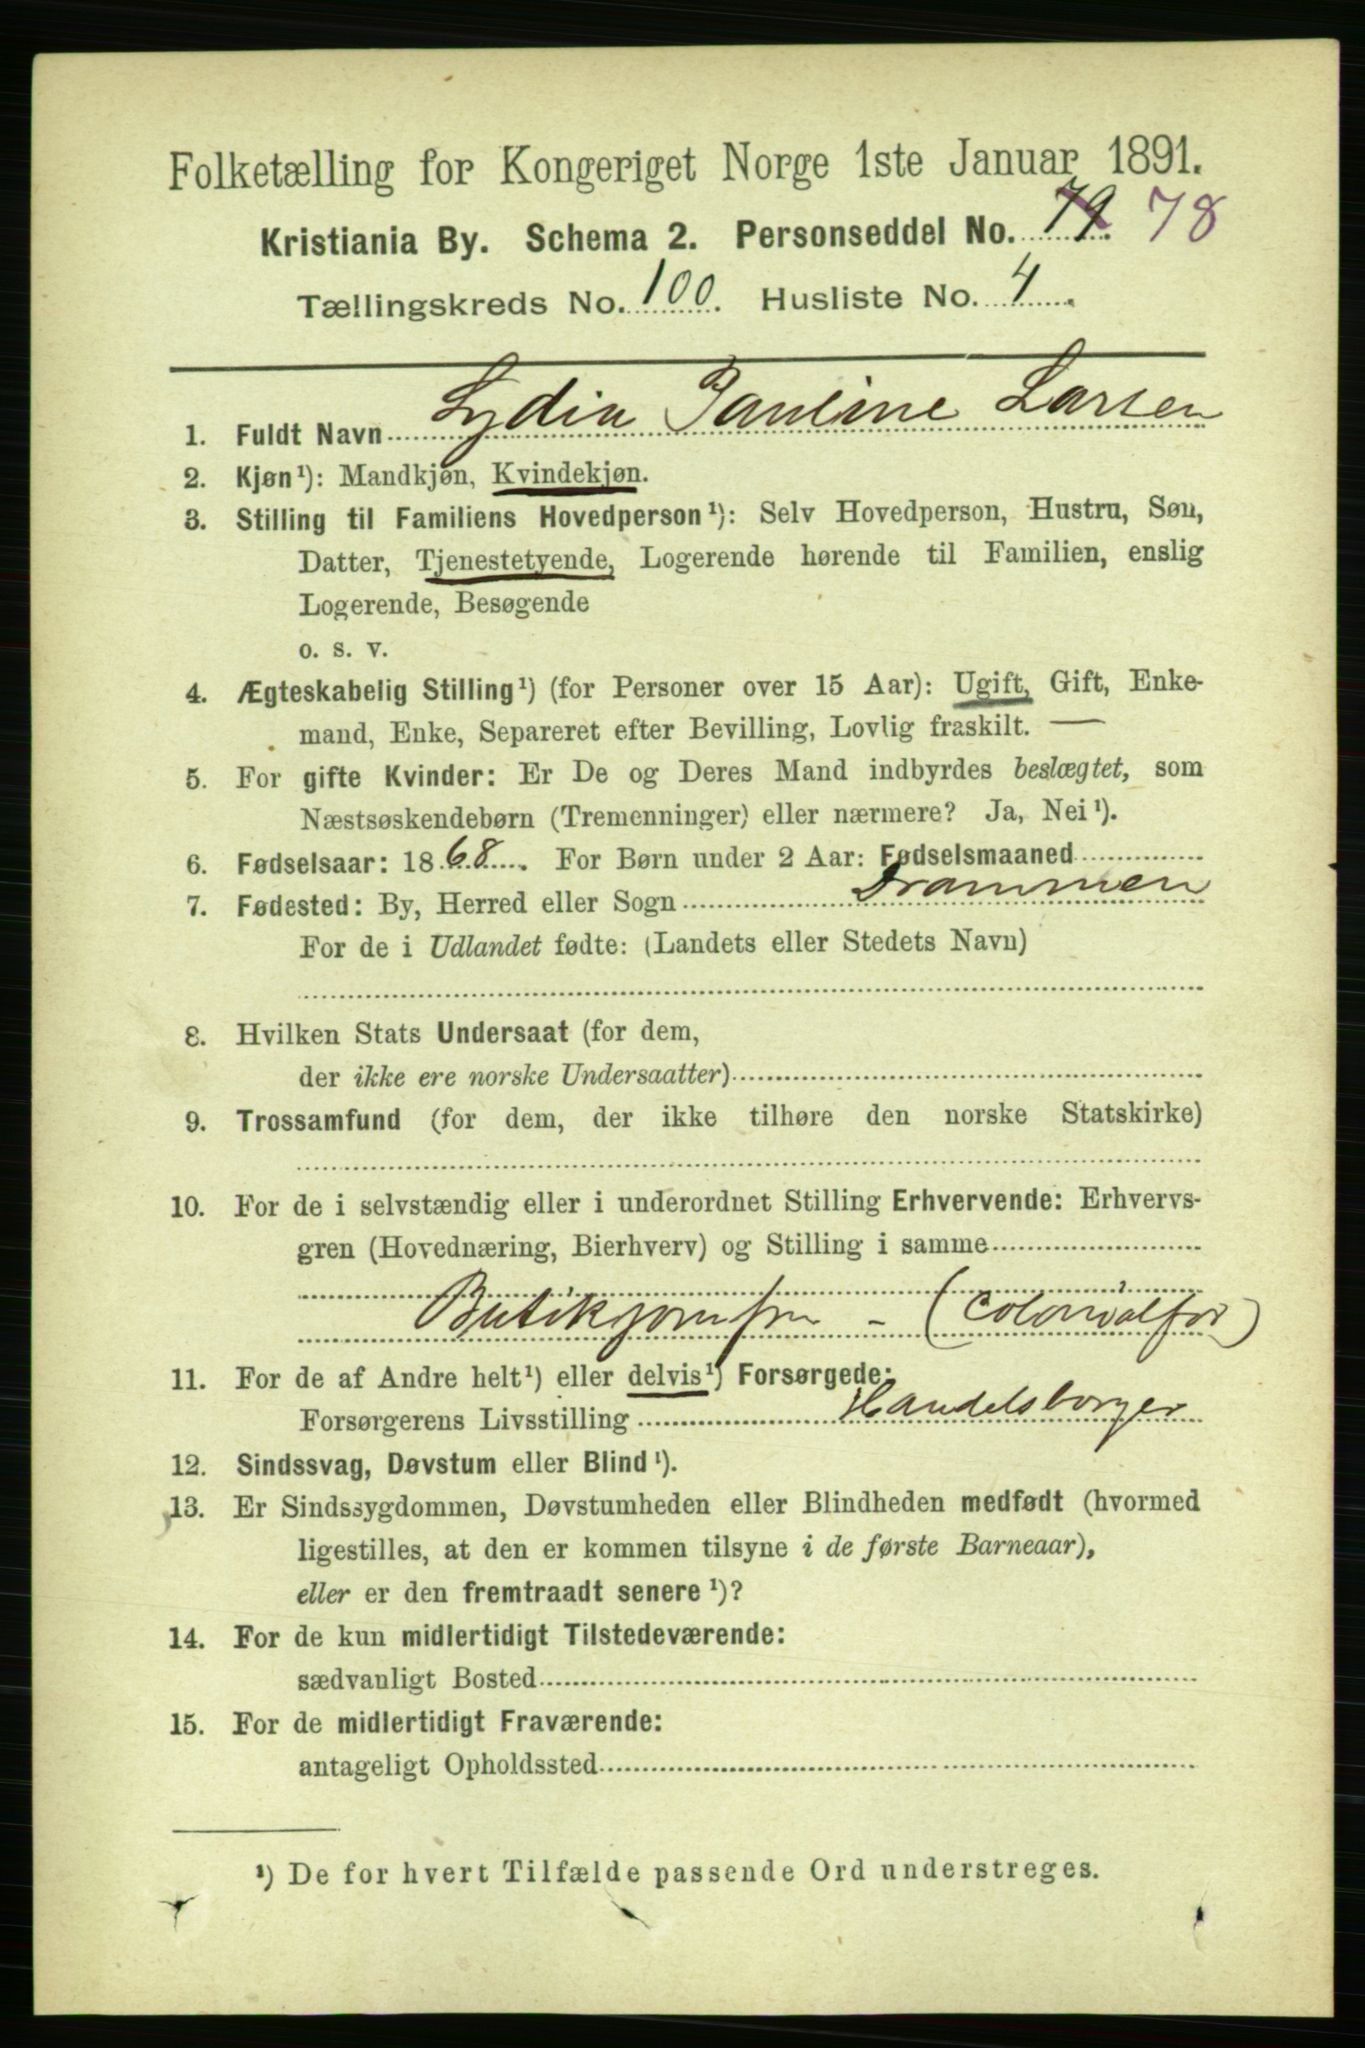 Folketælling for Kongeriget Norge 1ste Januar 1891.
Kristiania By. Schema 2. Personseddel No. 79. 78
Tællingskreds No. 100. Husliste No. 4.
1. Fuldt Navn Lydia Pauline Larsen
2. Kjøn¹): Mandkjøn, Kvindekjøn.
3. Stilling til Familiens Hovedperson¹): Selv Hovedperson, Hustru, Søn,
Datter, Tjenestetyende, Logerende hørende til Familien, enslig
Logerende, Besøgende
o. s. v.
4. Ægteskabelig Stilling¹) (for Personer over 15 Aar): Ugift, Gift, Enke-
mand, Enke, Separeret efter Bevilling, Lovlig fraskilt. —
5. For gifte Kvinder: Er De og Deres Mand indbyrdes beslægtet, som
Næstsøskendebørn (Tremenninger) eller nærmere? Ja, Nei¹).
6. Fødselsaar: 1868. For Børn under 2 Aar: Fødselsmaaned
7. Fødested: By, Herred eller Sogn Drammen
For de i Udlandet fødte: (Landets eller Stedets Navn)
8. Hvilken Stats Undersaat (for dem,
der ikke ere norske Undersaatter)
9. Trossamfund (for dem, der ikke tilhøre den norske Statskirke)
10. For de i selvstændig eller i underordnet Stilling Erhvervende: Erhvervs-
gren (Hovednæring, Bierhverv) og Stilling i samme
Butikjomfru - (Colonialfor)
11. For de af Andre helt¹) eller delvis¹) Forsørgede:
Forsørgerens Livsstilling Handelsborger
12. Sindssvag, Døvstum eller Blind¹).
13. Er Sindssygdommen, Døvstumheden eller Blindheden medfødt (hvormed
ligestilles, at den er kommen tilsyne i de første Barneaar),
eller er den fremtraadt senere¹)?
14. For de kun midlertidigt Tilstedeværende:
sædvanligt Bosted
15. For de midlertidigt Fraværende:
antageligt Opholdssted
¹) De for hvert Tilfælde passende Ord understreges.